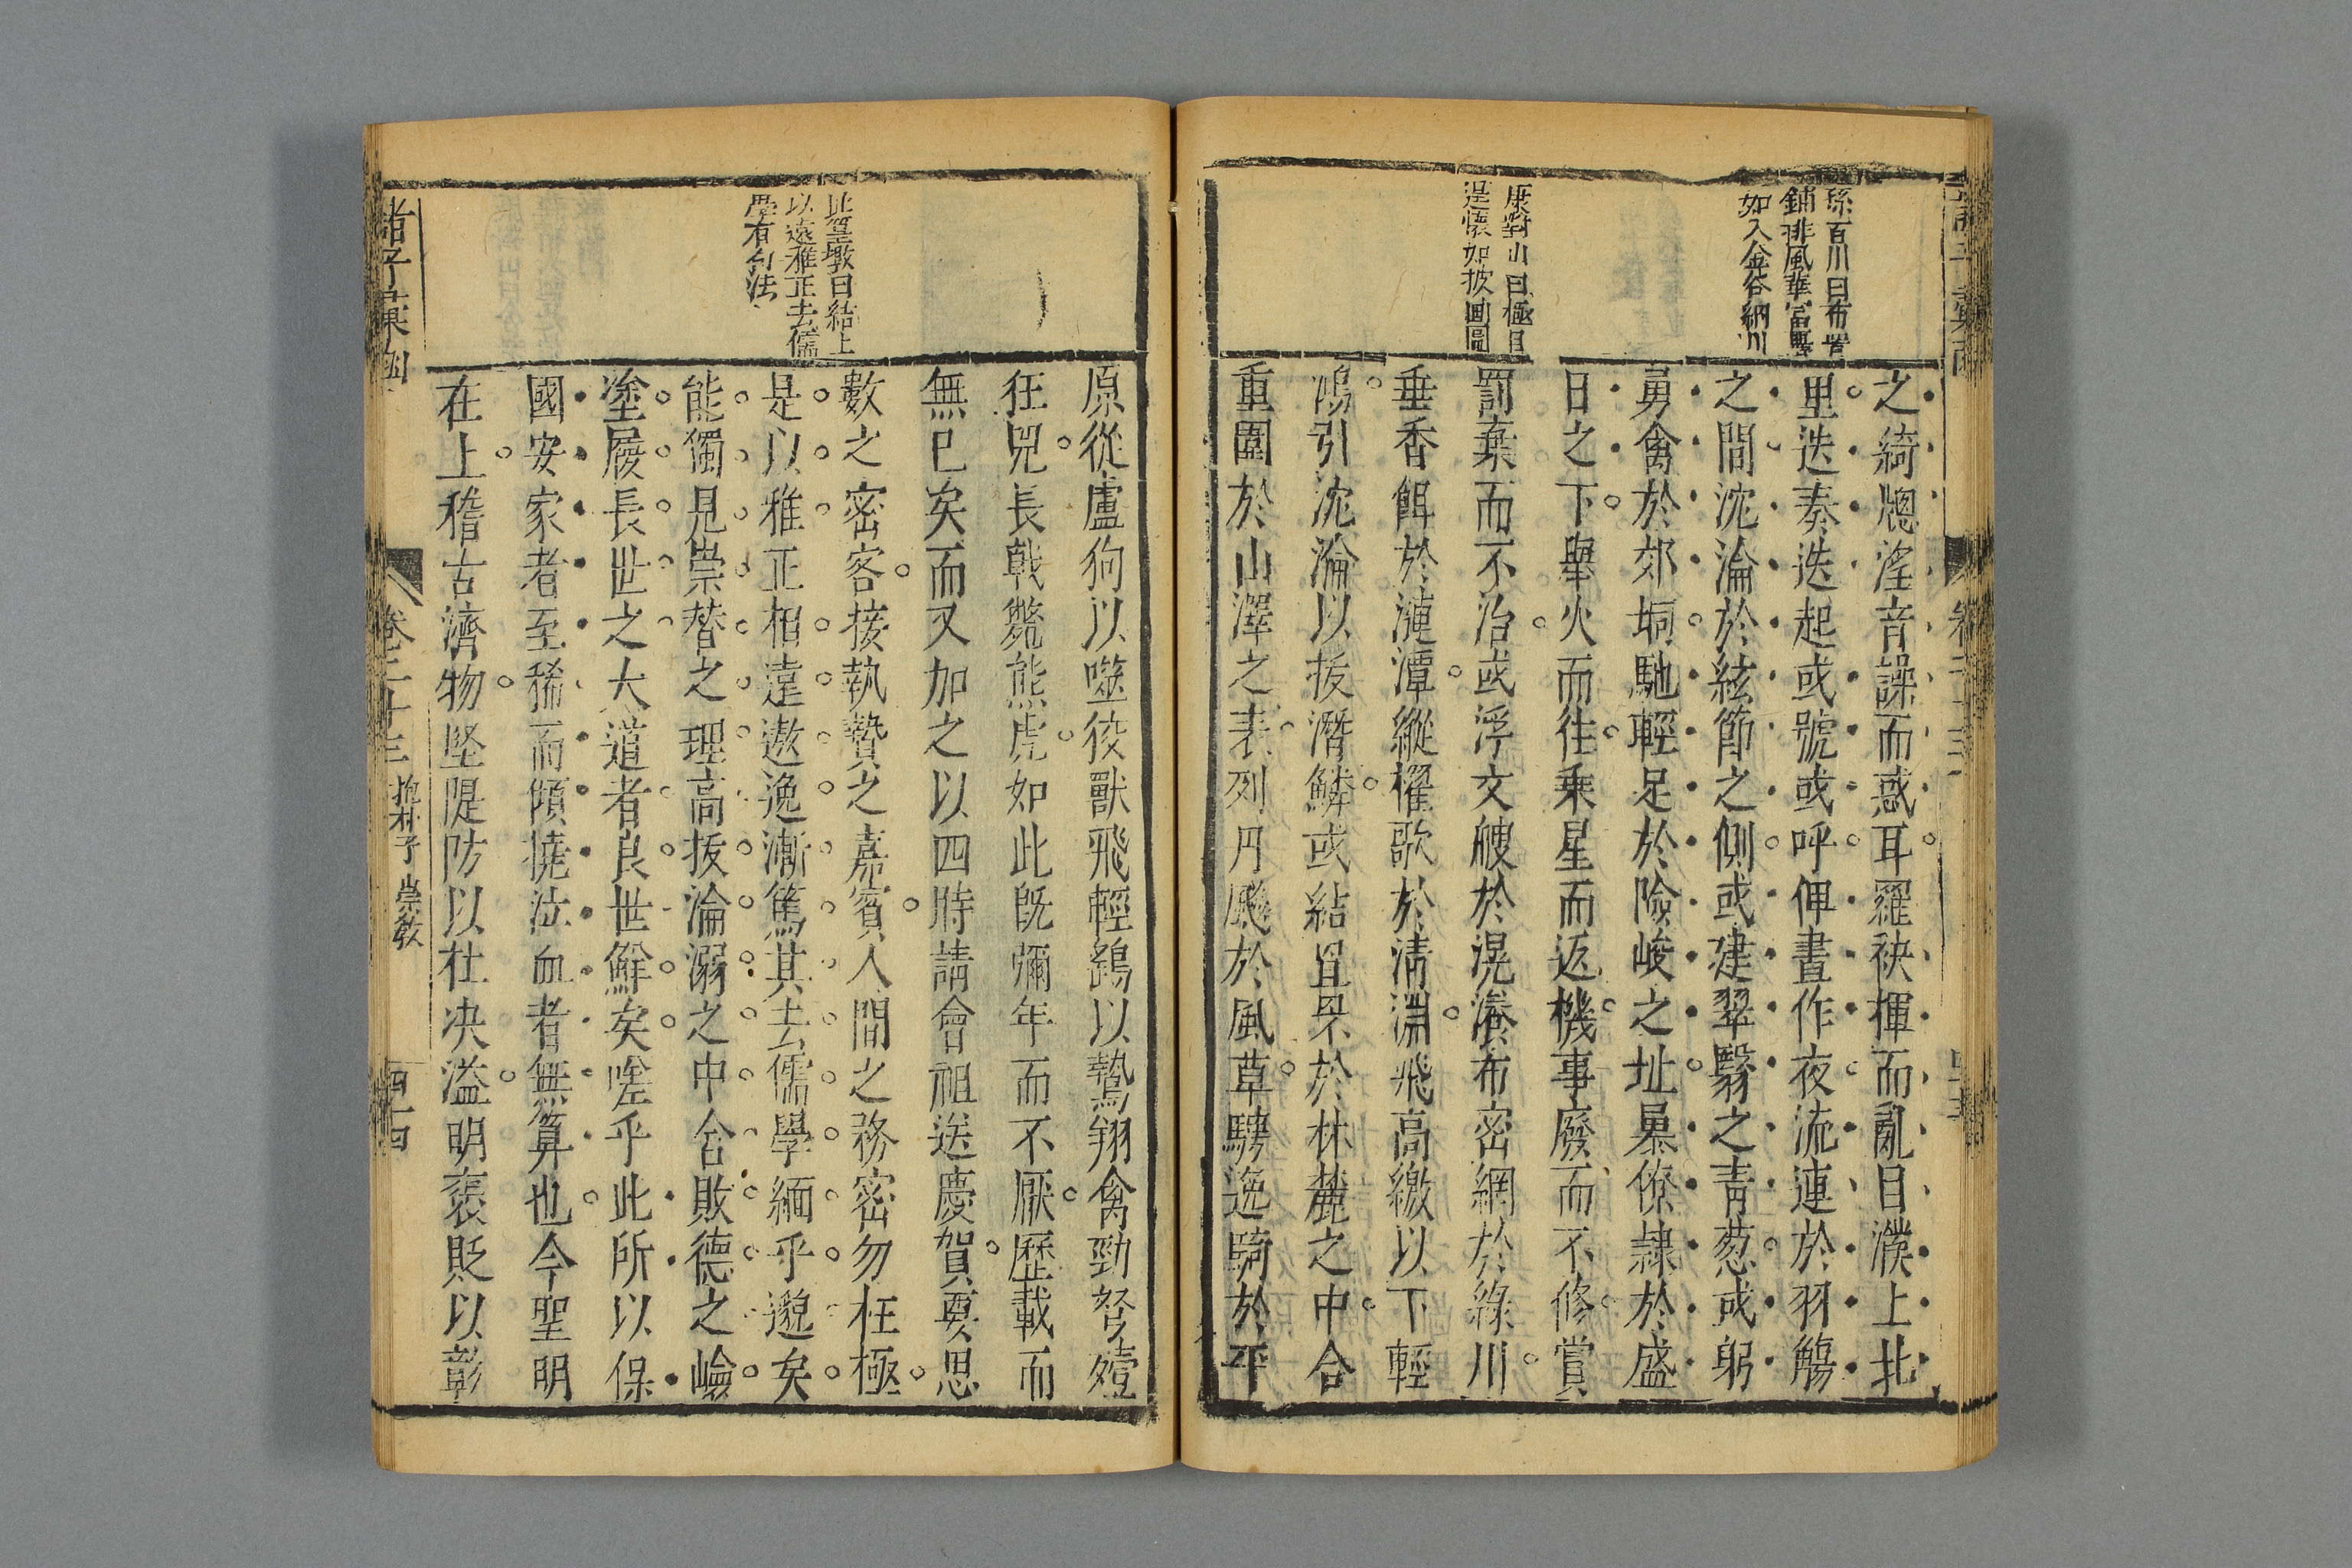 孫百川曰布置
鋪排風華富麗
如入金谷綱川
康對山曰極目
逞懷如披画圖
之綺牕淫音譟而惑耳羅袂揮而亂目濮上北
里迭奏迭起或號或呼俾晝作夜流連於羽觴
之間沈淪於絃節之側或建翠翳之青葱或躬
勇禽於郊坰馳輕足於險峻之址暴僚隷於盛
日之下舉火而往乗星而返機事廢而不修賞
罰棄而不治或浮文艘於滉瀁布密網於綠川
垂香餌於漣潭縱櫂歌於清淵飛高繳以下輕
鴻引沈淪以拔潛鱗或結罝罘於林麓之中合
重圍於山澤之表列丹飈於風草騁逸騎於平
址望墩曰結上
以遠雅正去儒
學有句法
原從盧狗以噬狡獸飛輕鷂以鷙翔禽勁弩殪
狂兕長戟斃熊虎如此既彌年而不厭歷載而
無已矣而又加之以四時請會祖送慶賀要思
數之密客接執贄之嘉賓人間之務密勿枉極
是以雅正相遠遨逸漸篤其去儒學緬乎邈矣
能獨見崇替之理高拔淪溺之中舍敗德之嶮
塗履長世之大道者良世鮮矣嗟乎此所以保
國安家者至稀而傾撓泣血者無算也今聖明
在上稽古濟物堅隄防以杜决溢明褒貶以彰
諸子彙函
卷二十三
抱朴子
崇教
四十四